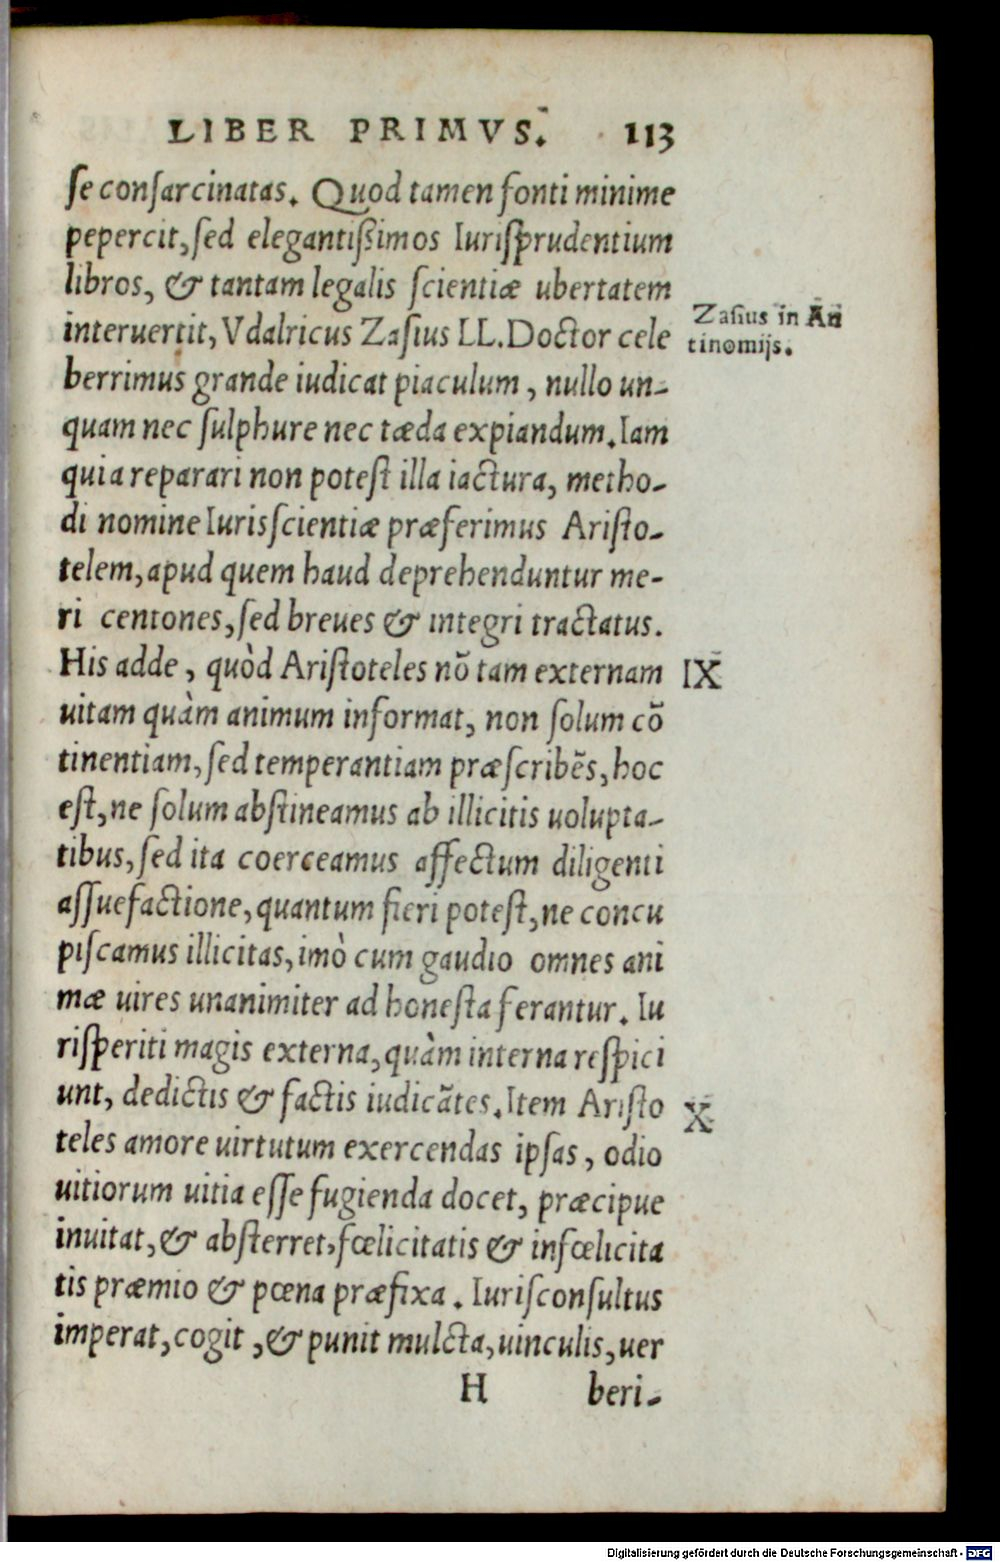 LIBER PRIMVS. 113
ſe conſarcinatas. Quod tamen fonti minime
pepercit, ſed elegantißimos Iuriſprudentium
libros, & tantam legalis ſcientiæ ubertatem
interuertit, Vdalricus Zaſius LL. Doctor cele
Zaſius in An
tinomijs.
berrimus grande iudicat piaculum, nullo un-
quam nec ſulphure nec tæda expiandum. Iam
quia reparari non poteſt illa iactura, metho-
di nomine Iurisſcientiæ præferimus Ariſto-
telem, apud quem haud deprehenduntur me-
ri centones, ſed breues & integri tractatus.
His adde, quòd Ariſtoteles nō tam externam
IX
uitam quàm animum informat, non ſolum cō
tinentiam, ſed temperantiam præſcribēs, hoc
eſt, ne ſolum abſtineamus ab illicitis uolupta-
tibus, ſed ita coerceamus affectum diligenti
aſſuefactione, quantum fieri poteſt, ne concu
piſcamus illicitas, imò cum gaudio omnes ani
mæ uires unanimiter ad honeſta ferantur. Iu
riſperiti magis externa, quàm interna reſpici
unt, de dictis & factis iudicātes. Item Ariſto
X
teles amore uirtutum exercendas ipſas, odio
uitiorum uitia eſſe fugienda docet, præcipue
inuitat, & abſterret, fœlicitatis & infœlicita
tis præmio & pœna præfixa. Iuriſconſultus
imperat, cogit, & punit mulcta, uinculis, uer
H beri-
Digitalisierung gefördert durch die Deutsche Forschungsgemeinschaft - DFG